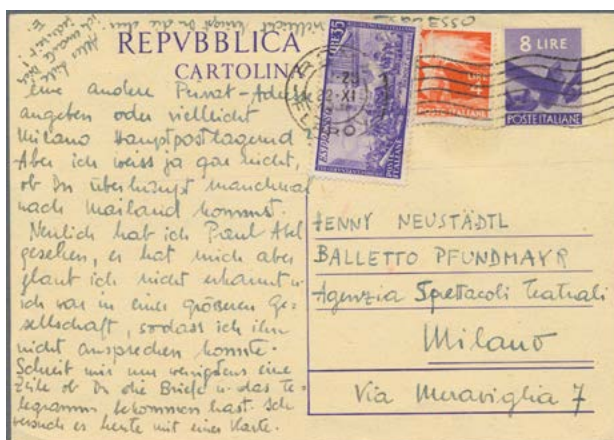 REPVBBLICA
CARTOLINA
8 LIRE
POSTE ITALIANE
LIRE 35
ESPRESSO
POSTE ITALIANE
4
POSTE ITALIANE
22-XI
eine andere Privat-Adre
angeben oder vielleicht
Milano Hauptpostlagernd
Aber ich weiss ja gar nicht,
ob Du überhaupt manchmal
nach Mailand kommst.
Neulich hab ich Paul Abel
gesehen, er hat mich aber
glaub ich nicht erkannt u.
ich war in einer größeren Ge-
sellschaft, sodass ich ihn
nicht ansprechen konnte.
Schreib mir nur wenigstens eine
Zeile ob Du die Briefe u. das Te-
legramm bekommen hast. Ich
versuch es heute mit einer Karte.
HENNY NEUSTÄDTL
BALLETTO PFUNDMAYR
Agenzia Spettacoli Teatrali
Milano
Via Meraviglia 7
ESPRESSO